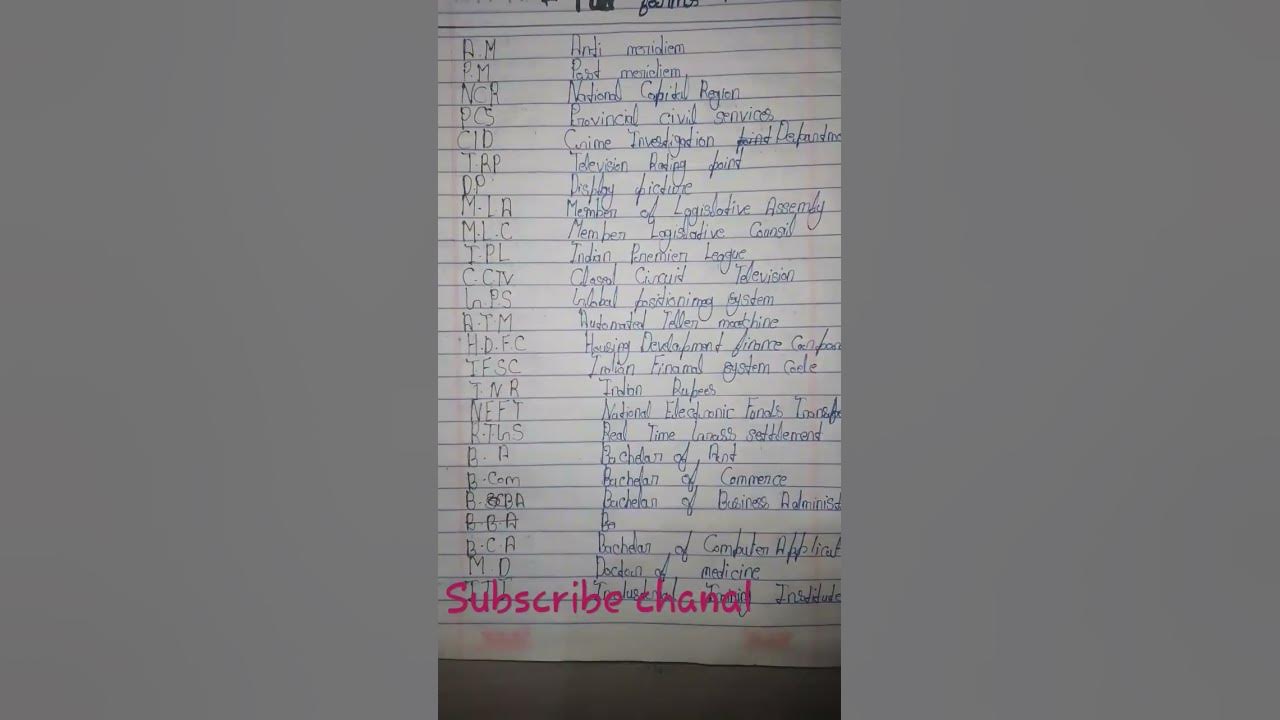 Full forms
A.M Anti meridiem
P.M Past meridiem
NCR National Capital Region
PCS Provincial civil services
CID Crime Investigation point Departme
T.RP Television Rating point
D.P Display picture
M.L.A Member of Legislative Assembly
M.L.C Member Legislative Council
I.PL Indian Premier League
C.CTV Closed Circuit Television
G.P.S Global positioning system
A.T.M Automated Teller machine
H.D.F.C Housing Development finance Compan
IFSC Indian Financial system Code
I.N.R Indian Rupees
NEFT National Electronic Fonds Transfe
R.T.G.S Real Time Gross settlement
B.A Bachelar of Art
B.Com Bachelar of Commerce
B.BA Bachelar of Business Administ
B.B.A Ba
B.C.A Bachelar of Computer Applicat
M.D Doctor of medicine
I.T.I Industerial Traning Institute
Subscribe chanal